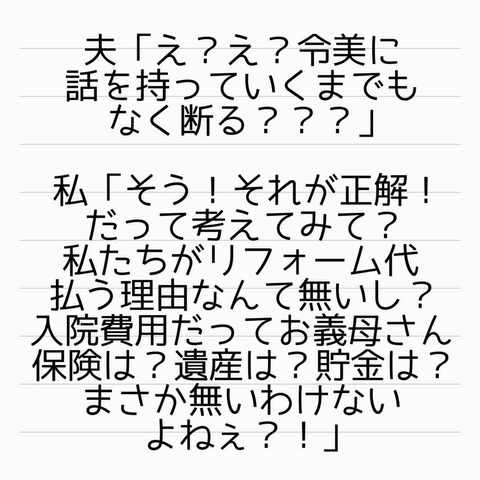 夫「え？え？令美に
話を持っていくまでも
なく断る？？？」
私「そう！それが正解！
だって考えてみて？
私たちがリフォーム代
払う理由なんて無いし？
入院費用だってお義母さん
保険は？遺産は？貯金は？
まさか無いわけない
よねぇ？！」